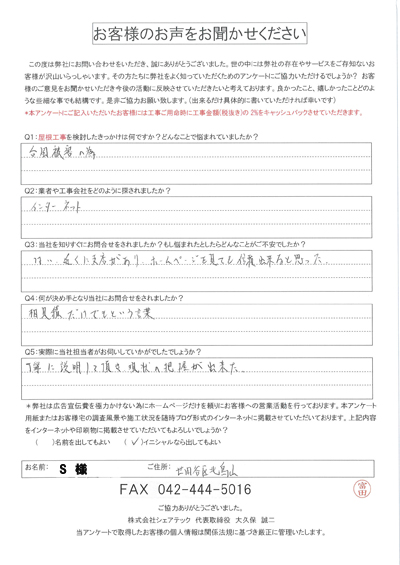 お客様のお声をお聞かせください
この度は弊社にお問い合わせをいただき、誠にありがとうございました。世の中には弊社の存在やサービスをご存知ないお
客様が沢山いらっしゃいます。その方たちに弊社をよく知っていただくためのアンケートにご協力いただけるでしょうか? お客
様のご意見をお聞かせいただき今後の活動に反映させていただきたいと考えております。良かったこと、嬉しかったことどのよ
うな些細な事でも結構です。是非ご協力お願い致します。(出来るだけ具体的に書いていただければ幸いです)
*本アンケートにご記入いただいたお客様には工事ご用命時に工事金額(税抜き)の 2%をキャッシュバックさせていただきます。
Q1:屋根工事を検討したきっかけは何ですか?どんなことで悩まれていましたか?
台風被害の為
Q2:業者や工事会社をどのように探されましたか?
インターネット
Q3:当社を知りすぐにお問合せをされましたか?もし悩まれたとしたらどんなことがご不安でしたか?
はい、近くに支店があり、ホームページを見ても信頼出来ると思った。
Q4:何が決め手となり当社にお問合せをされましたか?
相見積だけでもという言葉
Q5:実際に当社担当者がお伺いしていかがでしたでしょうか?
丁寧に説明して頂き現状の把握が出来た。
*弊社は広告宣伝費を極力かけない為にホームページだけを頼りにお客様への営業活動を行っております。本アンケート
用紙またはお客様宅の調査風景や施工状況を随時ブログ形式のインターネットに掲載させていただいております。上記内容
をインターネットや印刷物に掲載させていただいてもよろしいでしょうか?
( )名前を出してもよい (✓)イニシャルなら出してもよい
お名前: S 様 ご住所: 世田谷区
FAX 042-444-5016
富田
ご協力ありがとうございました。
株式会社シェアテック 代表取締役 大久保 誠二
当アンケートで取得したお客様の個人情報は関係法規に基づき厳正に管理いたします。